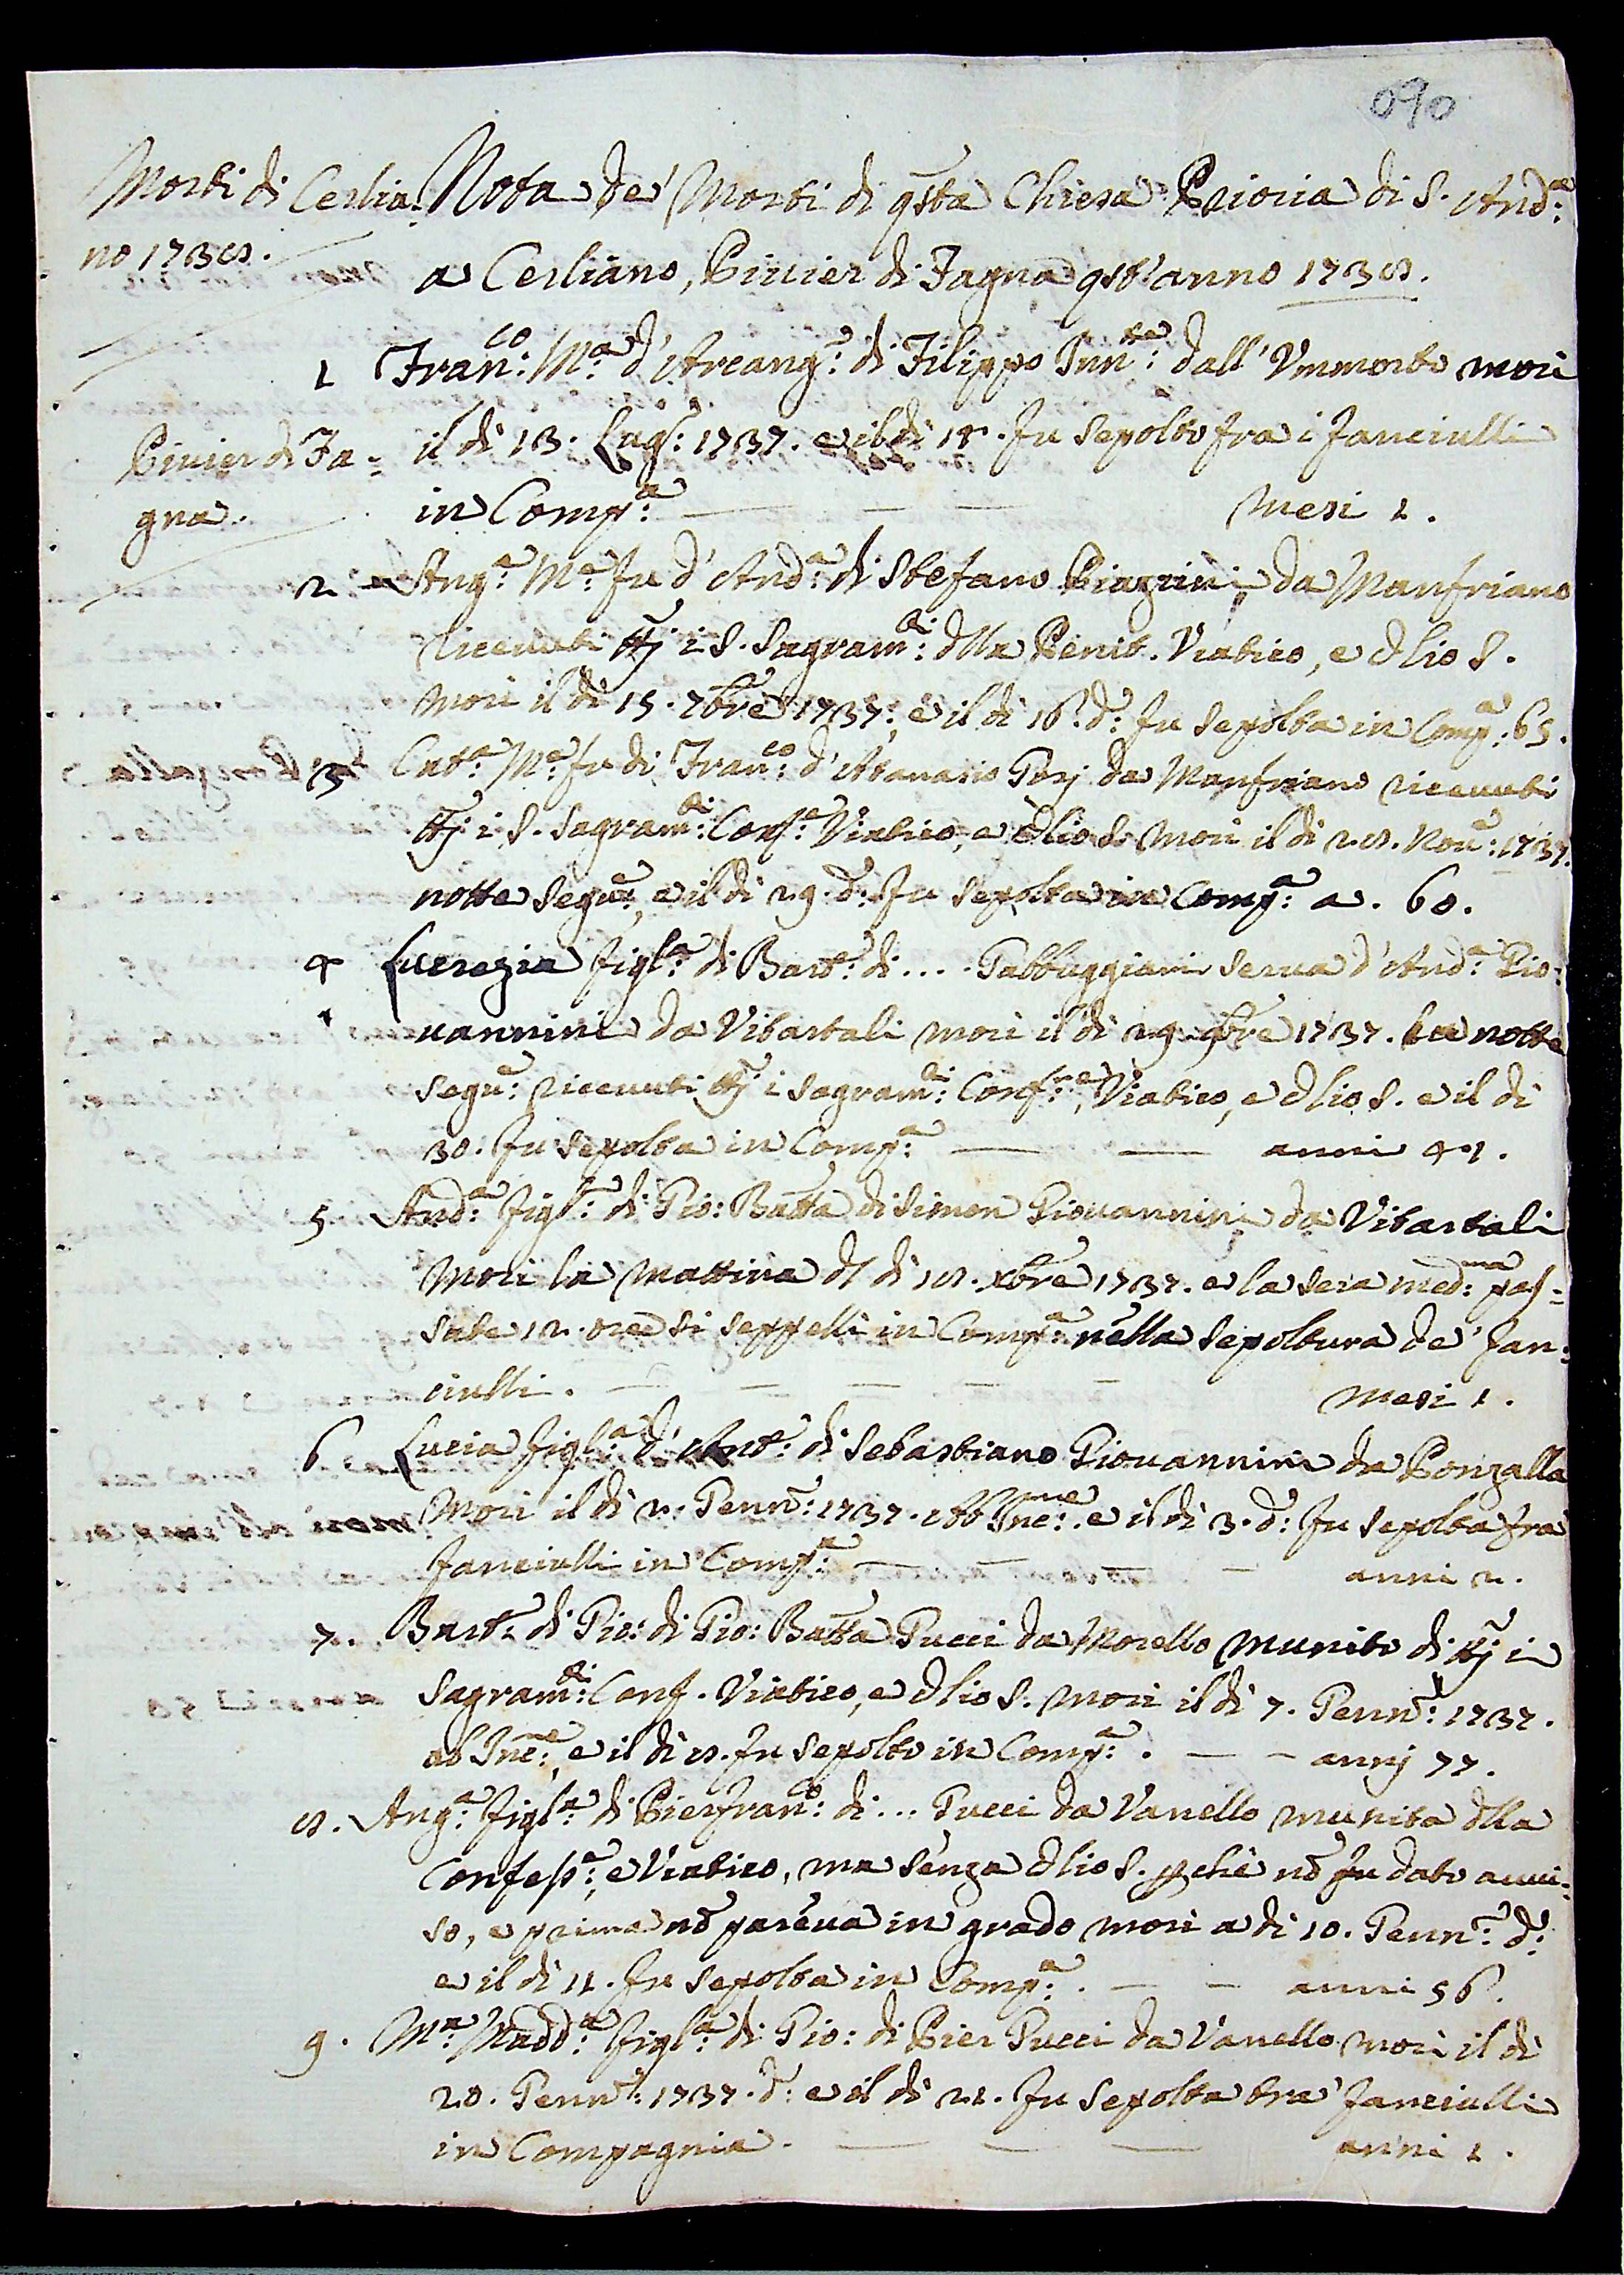 090
Morti di Cerlia=
no 1738.
Pivier di Fa=
gna.
Nota de' Morti di qsta Chiesa Prioria di S. And:ª
a Cerliano, Pivier di Fagna qst'anno 1738.
1 Fran:co M:ª d'Arcang:º di Filippo Inn:ti dall' Ummorto morì
il dì 13. Lugl: 1737. e il dì 14. fu sepolto fra i fanciulli
in Comp:ª — — — Mesi 1.
2 Ang:ª M:ª fu d'And:ª di Stefano Biagini da Manfriano
ricevuti ttj i S. Sagram:ti dlla Penit. Viatico, e Olio S.
morì il dì 15. 7bre 1737; e il dì 16. d:º fu sepolta in Comp:ª 65.
3 Cat:ª M:ª fu di Fran:co d'Atanasio Gorj da Manfriano ricevuti
ttj i S. Sagram:ti Conf:ª Viatico, e Olio S. morì il dì 28. Nov:e 1737.
notte segu:e, e il dì 29. d:º fu sepolta in Comp:ª a. 60.
4 Lucrezia figl:ª di Bart:º di .... Gabbuggiani serva d'And:ª Gio=
vannini da Vitartali morì il dì 29. 9bre 1737. la notte
segu: ricevuti ttj i Sagram:ti Conf:ne, Viatico, e Olio S. e il dì
30. fu sepolta in Comp:ª — — anni 41.
5 And:ª figl:º di Gio: Batta di Simon Giovannini da Vitartali
Morì la mattina dl dì 18. xbre 1737. e la sera med:ma pas=
sate 12. ore si seppellì in Comp:ª nella sepoltura de' fan=
ciulli. — — — — — Mesi 1.
6 Lucia figl:ª d'Ant:º di Sebastiano Giovannini da Ponzalla
Morì il dì 2. Genn:º 1737. ab Inc:ne e il dì 3. d:º fu sepolta fra
fanciulli in Comp:ª — — — — anni 2.
7. Bart:º di Gio: di Gio: Batta Pucci da Morello munito di ttj i
Sagram:ti Conf. Viatico, e Olio S. morì il dì 7. Genn:º 1737.
ab Inc:ne, e il dì 8. fu sepolto in Comp:ª. — — annj 77.
8. Ang:ª figl:ª di Pierfran:co di ... Pucci da Vanello munita dlla
Confess:e, e Viatico, ma senza Olio S. pchè nõ fu dato avvi=
so, e prima nõ pareva in grado morì a dì 10. Genn:º d:º
e il dì 11. fu sepolta in Comp:ª. — — anni 56.
9. M:ª Madd:ª figl:ª di Gio: di Pier Pucci da Vanello morì il dì
20. Genn:º 1737. d:º e il dì 21. fu sepolta tra' fanciulli
in Compagnia. — — — anni 1.